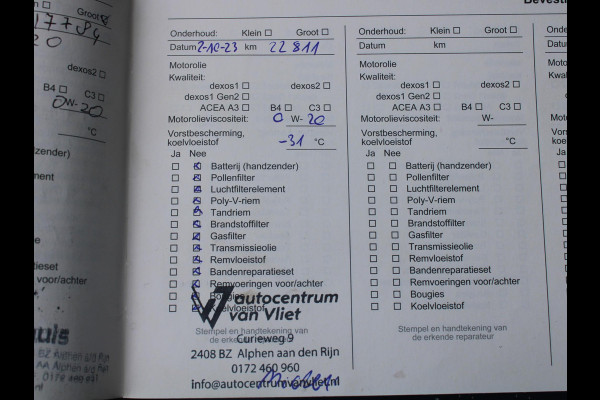 Groot
17784
20
dexos2 ☐
B4 ☐ C3 ☐
0W-20
°C
zender)
ment
e
atieset
voor/achter
Bevesti
Onderhoud: Klein ☐ Groot ☐
Datum 2-10-23 km 22811
Motorolie
Kwaliteit:
dexos1 ☐ dexos2 ☐
dexos1 Gen2 ☐
ACEA A3 ☐ B4 ☐ C3 ☐
Motorolieviscositeit: 0 W- 20
Vorstbescherming,
koelvloeistof -31 °C
Ja Nee
Batterij (handzender)
Pollenfilter
Luchtfilterelement
Poly-V-riem
Tandriem
Brandstoffilter
Gasfilter
Transmissieolie
Remvloeistof
Bandenreparatieset
Remvoeringen voor/achter
Bougies
Koelvloeistof
autocentrum
van Vliet
Stempel en handtekening van
de erkende reparateur
Curieweg 9
2408 BZ Alphen aan den Rijn
0172 460 960
info@autocentrumvanvliet.nl
Onderhoud: Klein ☐ Groot ☐
Datum km
Motorolie
Kwaliteit:
dexos1 ☐ dexos2 ☐
dexos1 Gen2 ☐
ACEA A3 ☐ B4 ☐ C3 ☐
Motorolieviscositeit: W-
Vorstbescherming,
koelvloeistof °C
Ja Nee
Batterij (handzender)
Pollenfilter
Luchtfilterelement
Poly-V-riem
Tandriem
Brandstoffilter
Gasfilter
Transmissieolie
Remvloeistof
Bandenreparatieset
Remvoeringen voor/achter
Bougies
Koelvloeistof
Stempel en handtekening van
de erkende reparateur
Onde
Datu
Moto
Kwal